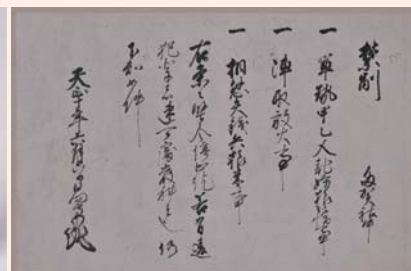 禁制　多賀社
一 軍勢甲乙人乱妨狼藉事
一 陣取放火事
一 相懸矢銭兵粮米事
右条々堅令停止訖若有違
犯輩者速可処厳科者也仍
下知如件
天正十年六月